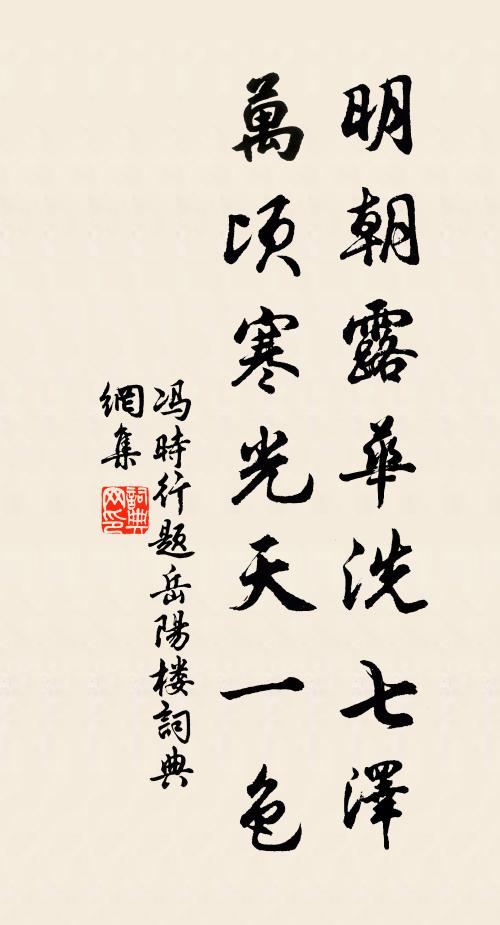 明朝露華洗七澤
萬頃寒光天一色
馮時行題岳陽楼詞典
網集
詞典网印